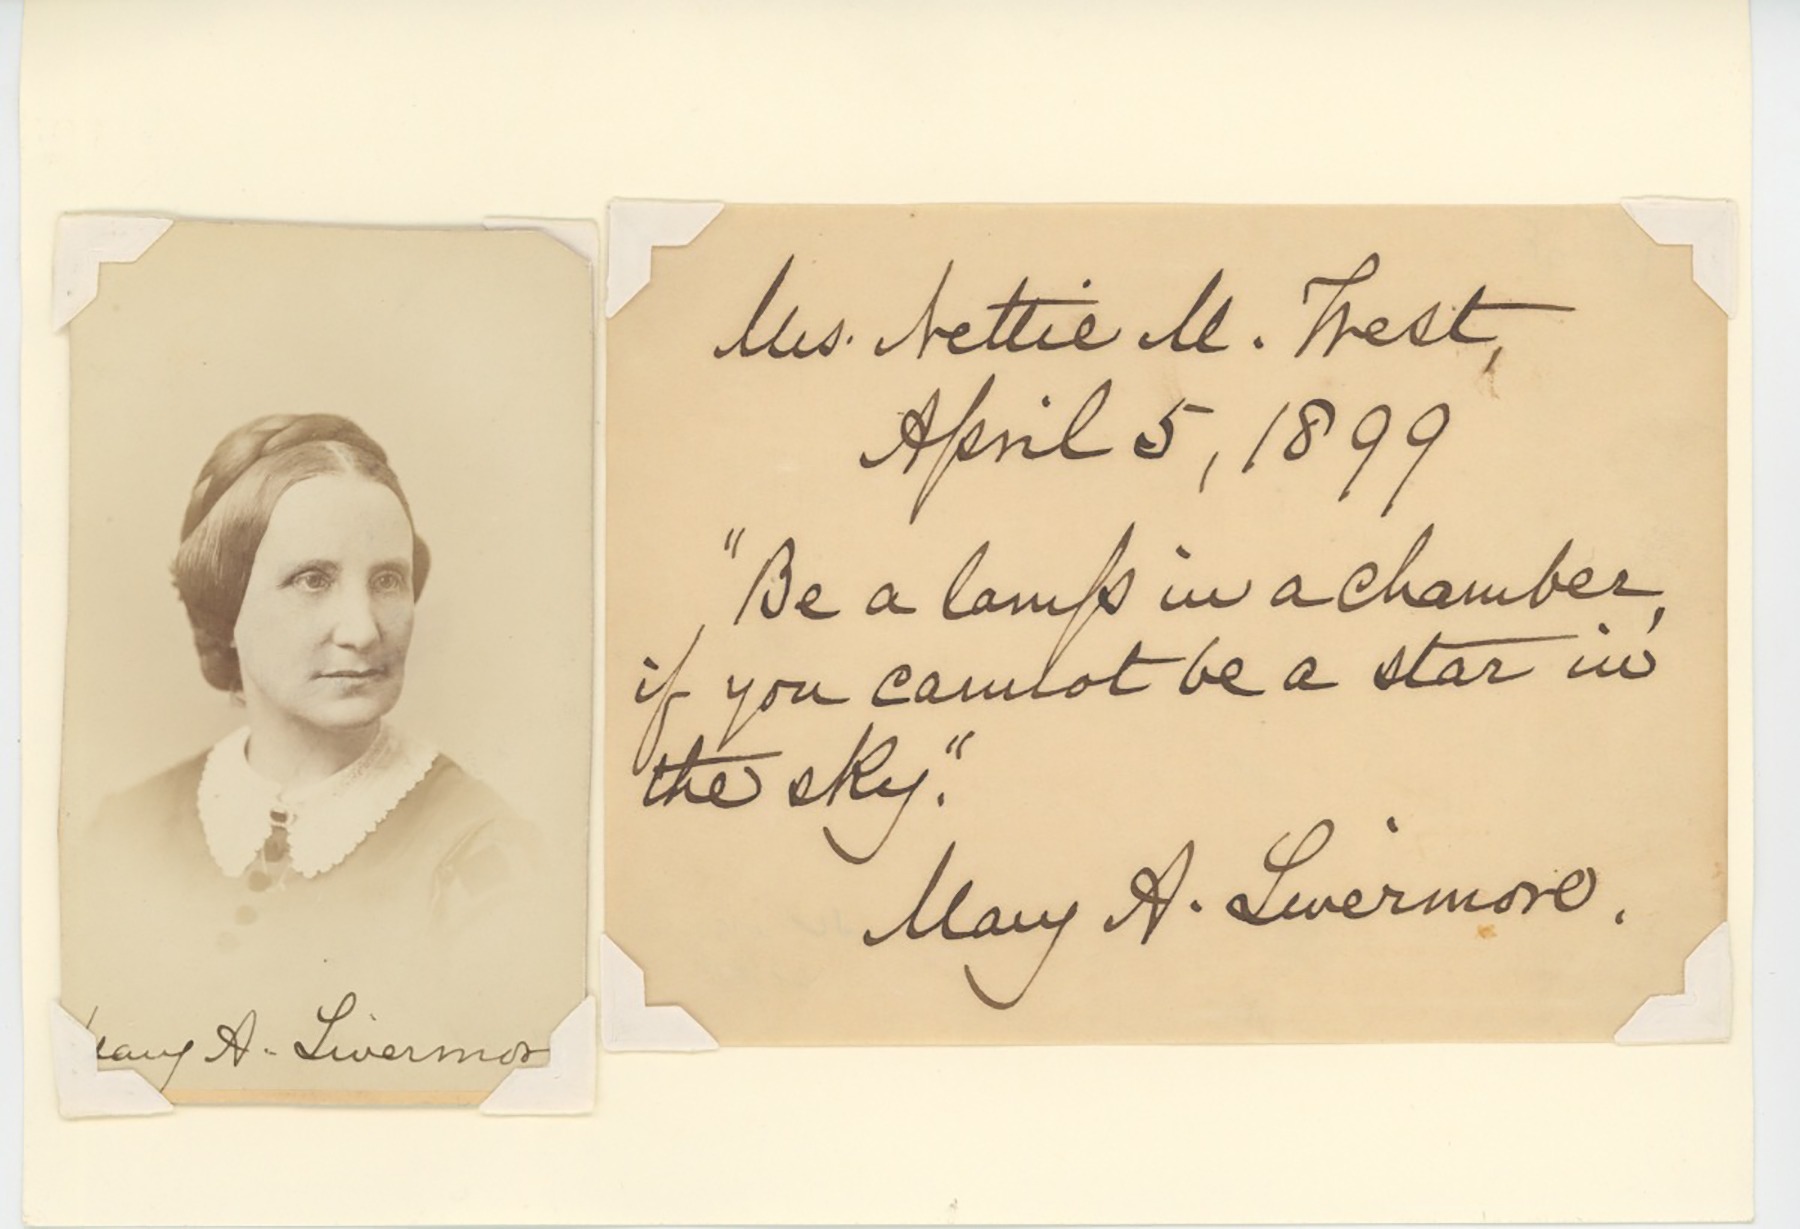 Mary A. Livermor
Mrs. Nettie M. West,
April 5, 1899
"Be a lamp in a chamber,
if you cannot be a star in
the sky."
Mary A. Livermore.